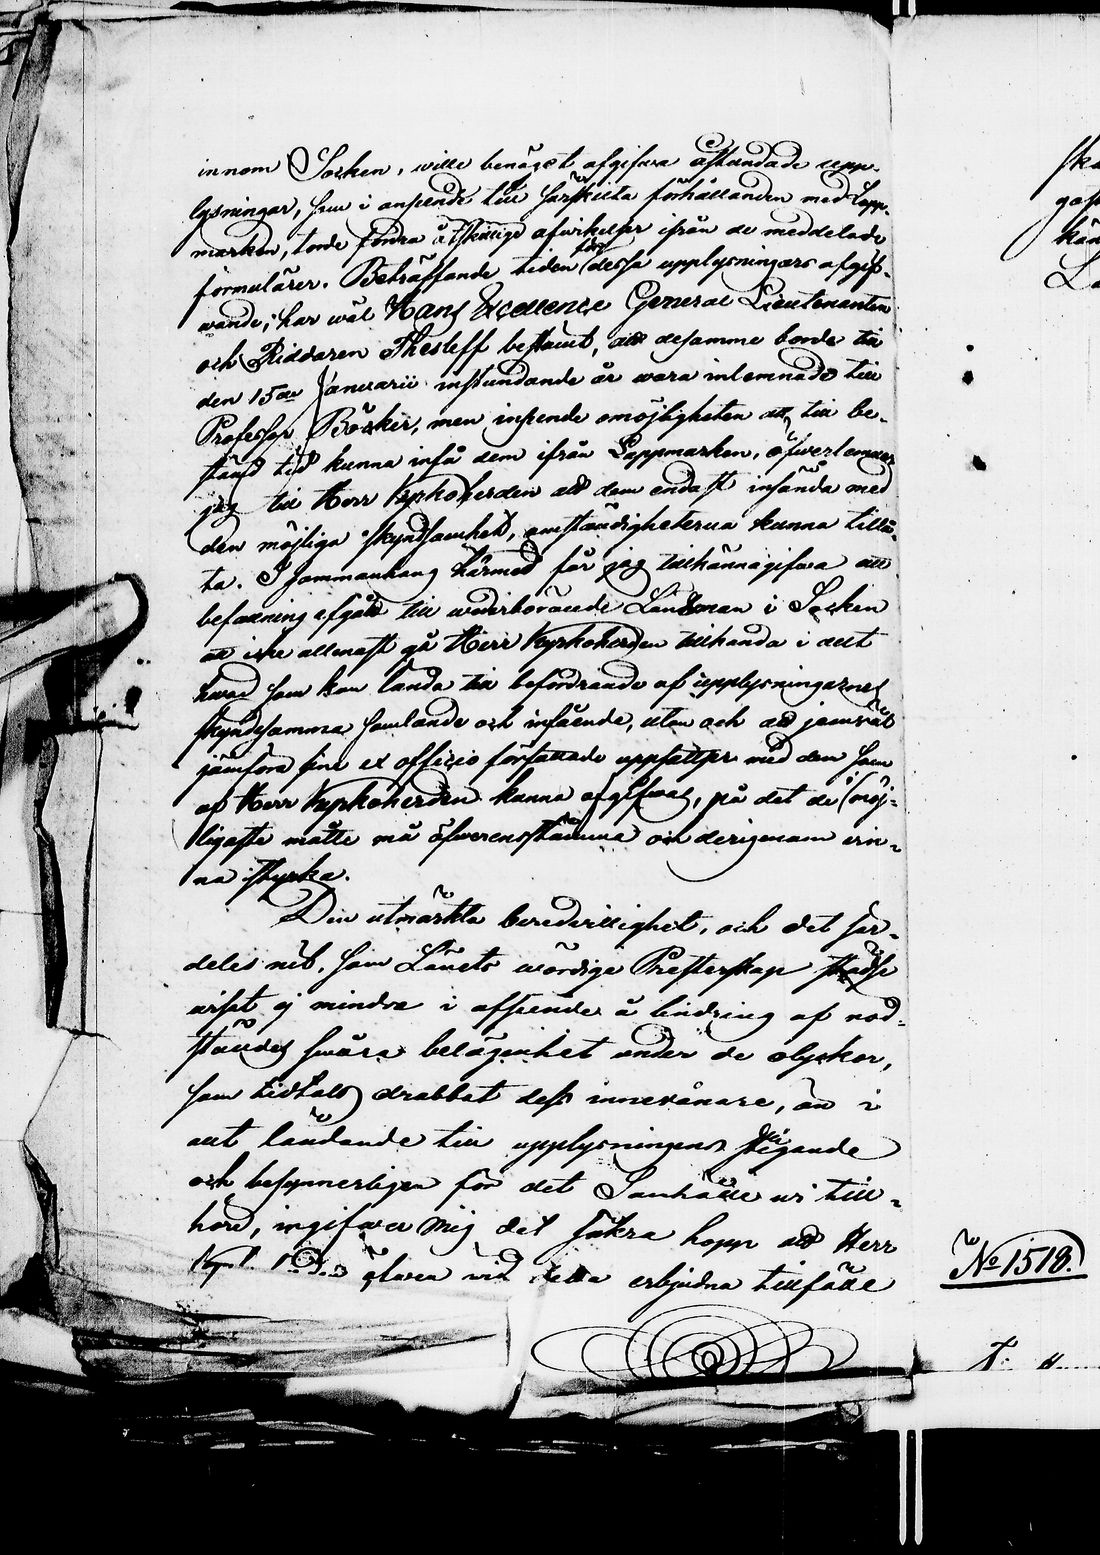 innom Socken, wille benäget afgifwa åstundade upp-
lysningar, som i anseende till särskilta förhållanden med Lapp-
marken, torde fordra åtskillige afwikelser ifrån de meddelade
formulärer. Beträffande tiden för dessa upplysningars afgif-
wande; har wäl Hans Excellence General Lieutenanten
och Riddaren Thesleff bestämt, att desamme borde till
den 15de Januarii instundande år wara inlemnade till
Professor Böcker, men inseende omöjligheten att till be-
stämd tid kunna infå dem ifrån Lappmarken, öfwerlemnar
jag till Herr Kyrkoherden att dem endast insända med
den möjliga skyndsamhet, omständigheterna kunna tillå-
ta. I sammanhang härmed får jag tillkännagifwa att
befallning afgått till wederbörande Länsman i Socken
att icke allenast gå Herr Kyrkoherden tillhanda i allt
hwad som kan lända till befordrande af upplysningarnes
skyndsamma samlande och infående, utan och att jemwäl
jämföra sine ex officio författade uppsatser med dem som
af Herr Kyrkoherden kunna afgifwas, på det de i möj-
ligaste måtto må öfwerensstämma och derigenom win-
na styrka.
Den utmärkta beredwillighet, och det sär-
deles nit, som Länets wördige Presterskap städse
wist ej mindre i afseende å lindring af nöd-
ständes swåra belägenhet under de olyckor,
som tidtals drabbat dess innewånare, än i
allt ländande till upplysningens stigande
och besynnerligen för det Samhälle wi till-
höre, ingifwer mig det säkra hopp att Herr
wid detta erbjudna tillfälle
No 1518.